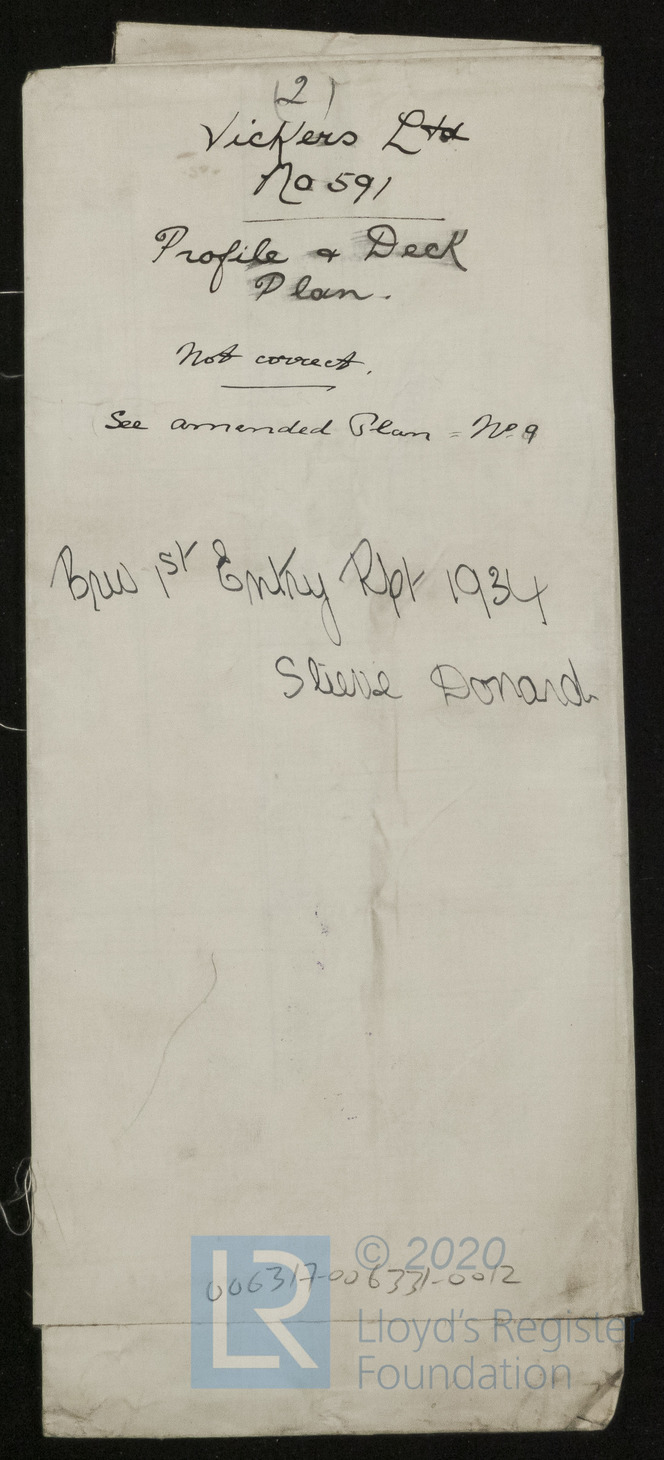 (2)
Vickers Ltd
No 591
Profile & Deck
Plan.
Not correct.
See amended Plan = No 9
1st Entry Rpt 1934
Slieve Donard
006317-006331-0012
LR
© 2020
Lloyd's Register
Foundation